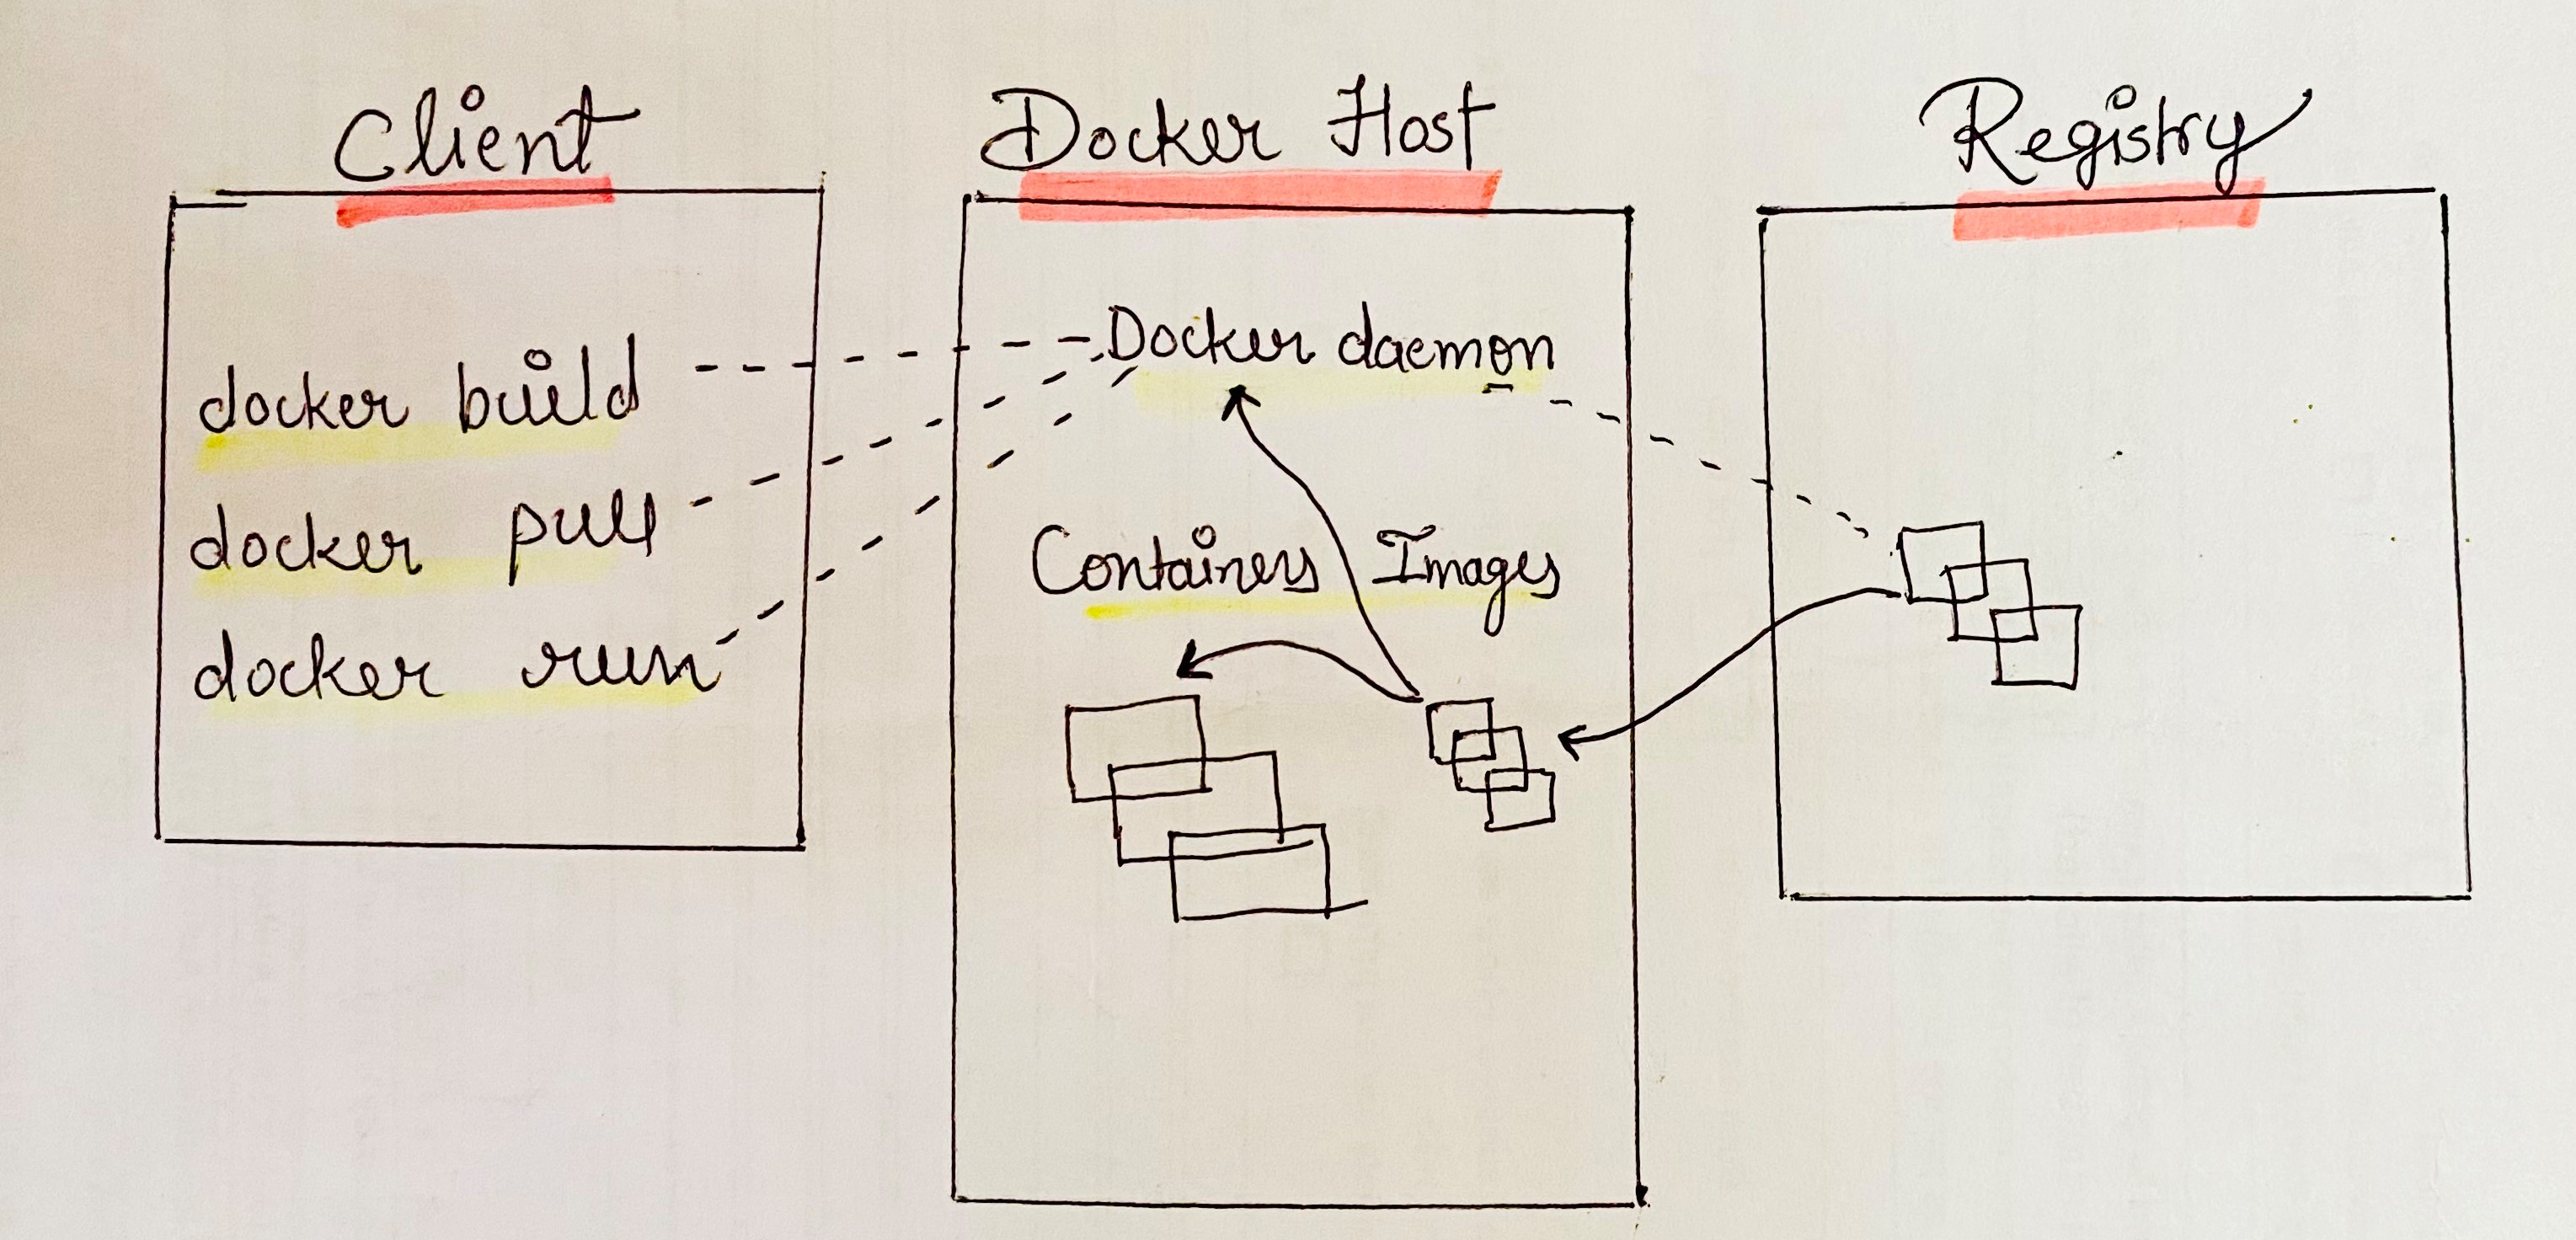 Client
docker build
docker pull
docker run
Docker Host
Docker daemon
Containers Images
Registry